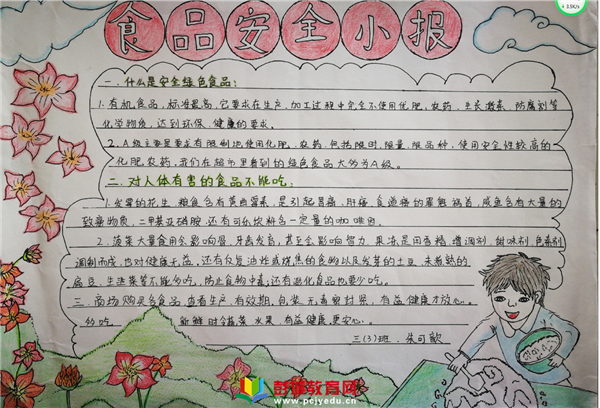 食品安全小报
一.什么是安全绿色食品:
1.有机食品,标准最高,它要求在生产,加工过程中完全不使用化肥,农药,生长激素,防腐剂等
化学物质,达到环保,健康的要求。
2.A级主要是要求有限制地使用化肥,农药,包括限时,限量,限品种,使用安全性较高的
化肥,农药,我们在超市里看到的绿色食品大多为A级。
二.对人体有害的食品不能吃:
1.发霉的花生,粮食含有黄曲霉素,是引起胃癌,肝癌,食道癌的罪魁祸首,咸鱼含有大量的
致癌物质,二甲基亚硝胺,还有可乐饮料含一定量的咖啡因。
2.菠菜大量食用会影响骨,牙齿发育,甚至会影响智力,果冻是用香精,增调剂,甜味剂,色素剂
调制而成,也对健康无益,还有反复油炸或烤焦的食物以及发芽的土豆,未煮熟的
扁豆,生涩菜等不能多吃,防止食物中毒;还有恶化食品也要少吃。
三.商场购买多食品,查看生产,有效期,包装,无毒要封器,有益健康才放心。
多吃 新鲜时令蔬菜水果,有益健康更安心。
三(3)班 朱可歆
彭雅教育网
www.pcjyedu.cn
3.5K/s